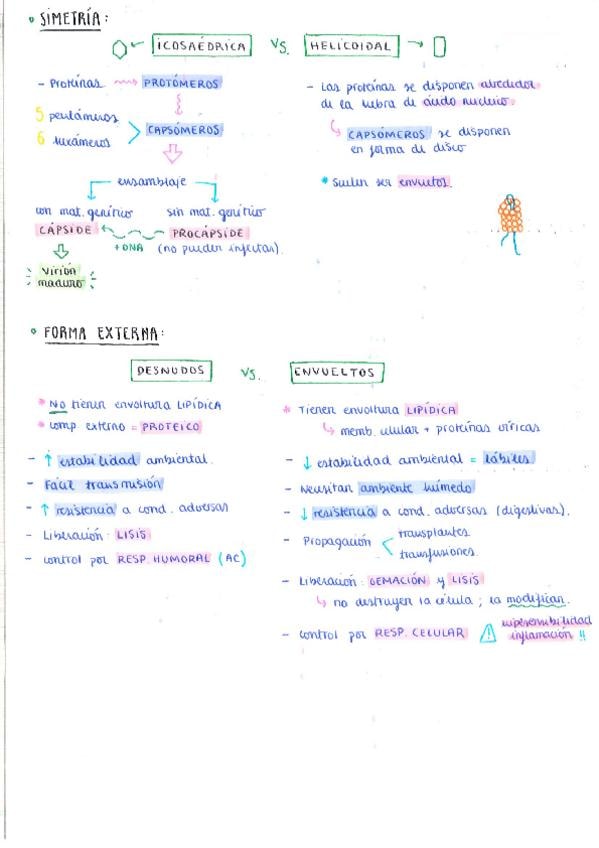 • SIMETRÍA:
ICOSAÉDRICA VS. HELICOIDAL
- Proteínas PROTÓMEROS
5 pentámeros
6 hexámeros
CAPSÓMEROS
ensamblaje
con mat. genético
CÁPSIDE
sin mat. genético
PROCÁPSIDE
+ DNA
(no pueden infectar).
virión
maduro
- Las proteínas se disponen alrededor
de la hebra de ácido nucleico.
CAPSÓMEROS se disponen
en forma de disco
* Suelen ser envueltos.
• FORMA EXTERNA:
DESNUDOS VS. ENVUELTOS
* NO tienen envoltura LIPÍDICA
* comp. externo = PROTEICO
- ↑ estabilidad ambiental.
- Fácil transmisión
- ↑ resistencia a cond. adversas
- Liberación: LISIS
- control por RESP. HUMORAL (AC)
* Tienen envoltura LIPÍDICA
memb. celular + proteínas víricas
- ↓ estabilidad ambiental = lábiles
- Necesitan ambiente húmedo
- ↓ resistencia a cond. adversas (digestivas).
- Propagación < transplantes
transfusiones.
- Liberación: GEMACIÓN y LISIS
no destruyen la célula; la modifican.
- control por RESP. CELULAR ⚠ hipersensibilidad
inflamación !!